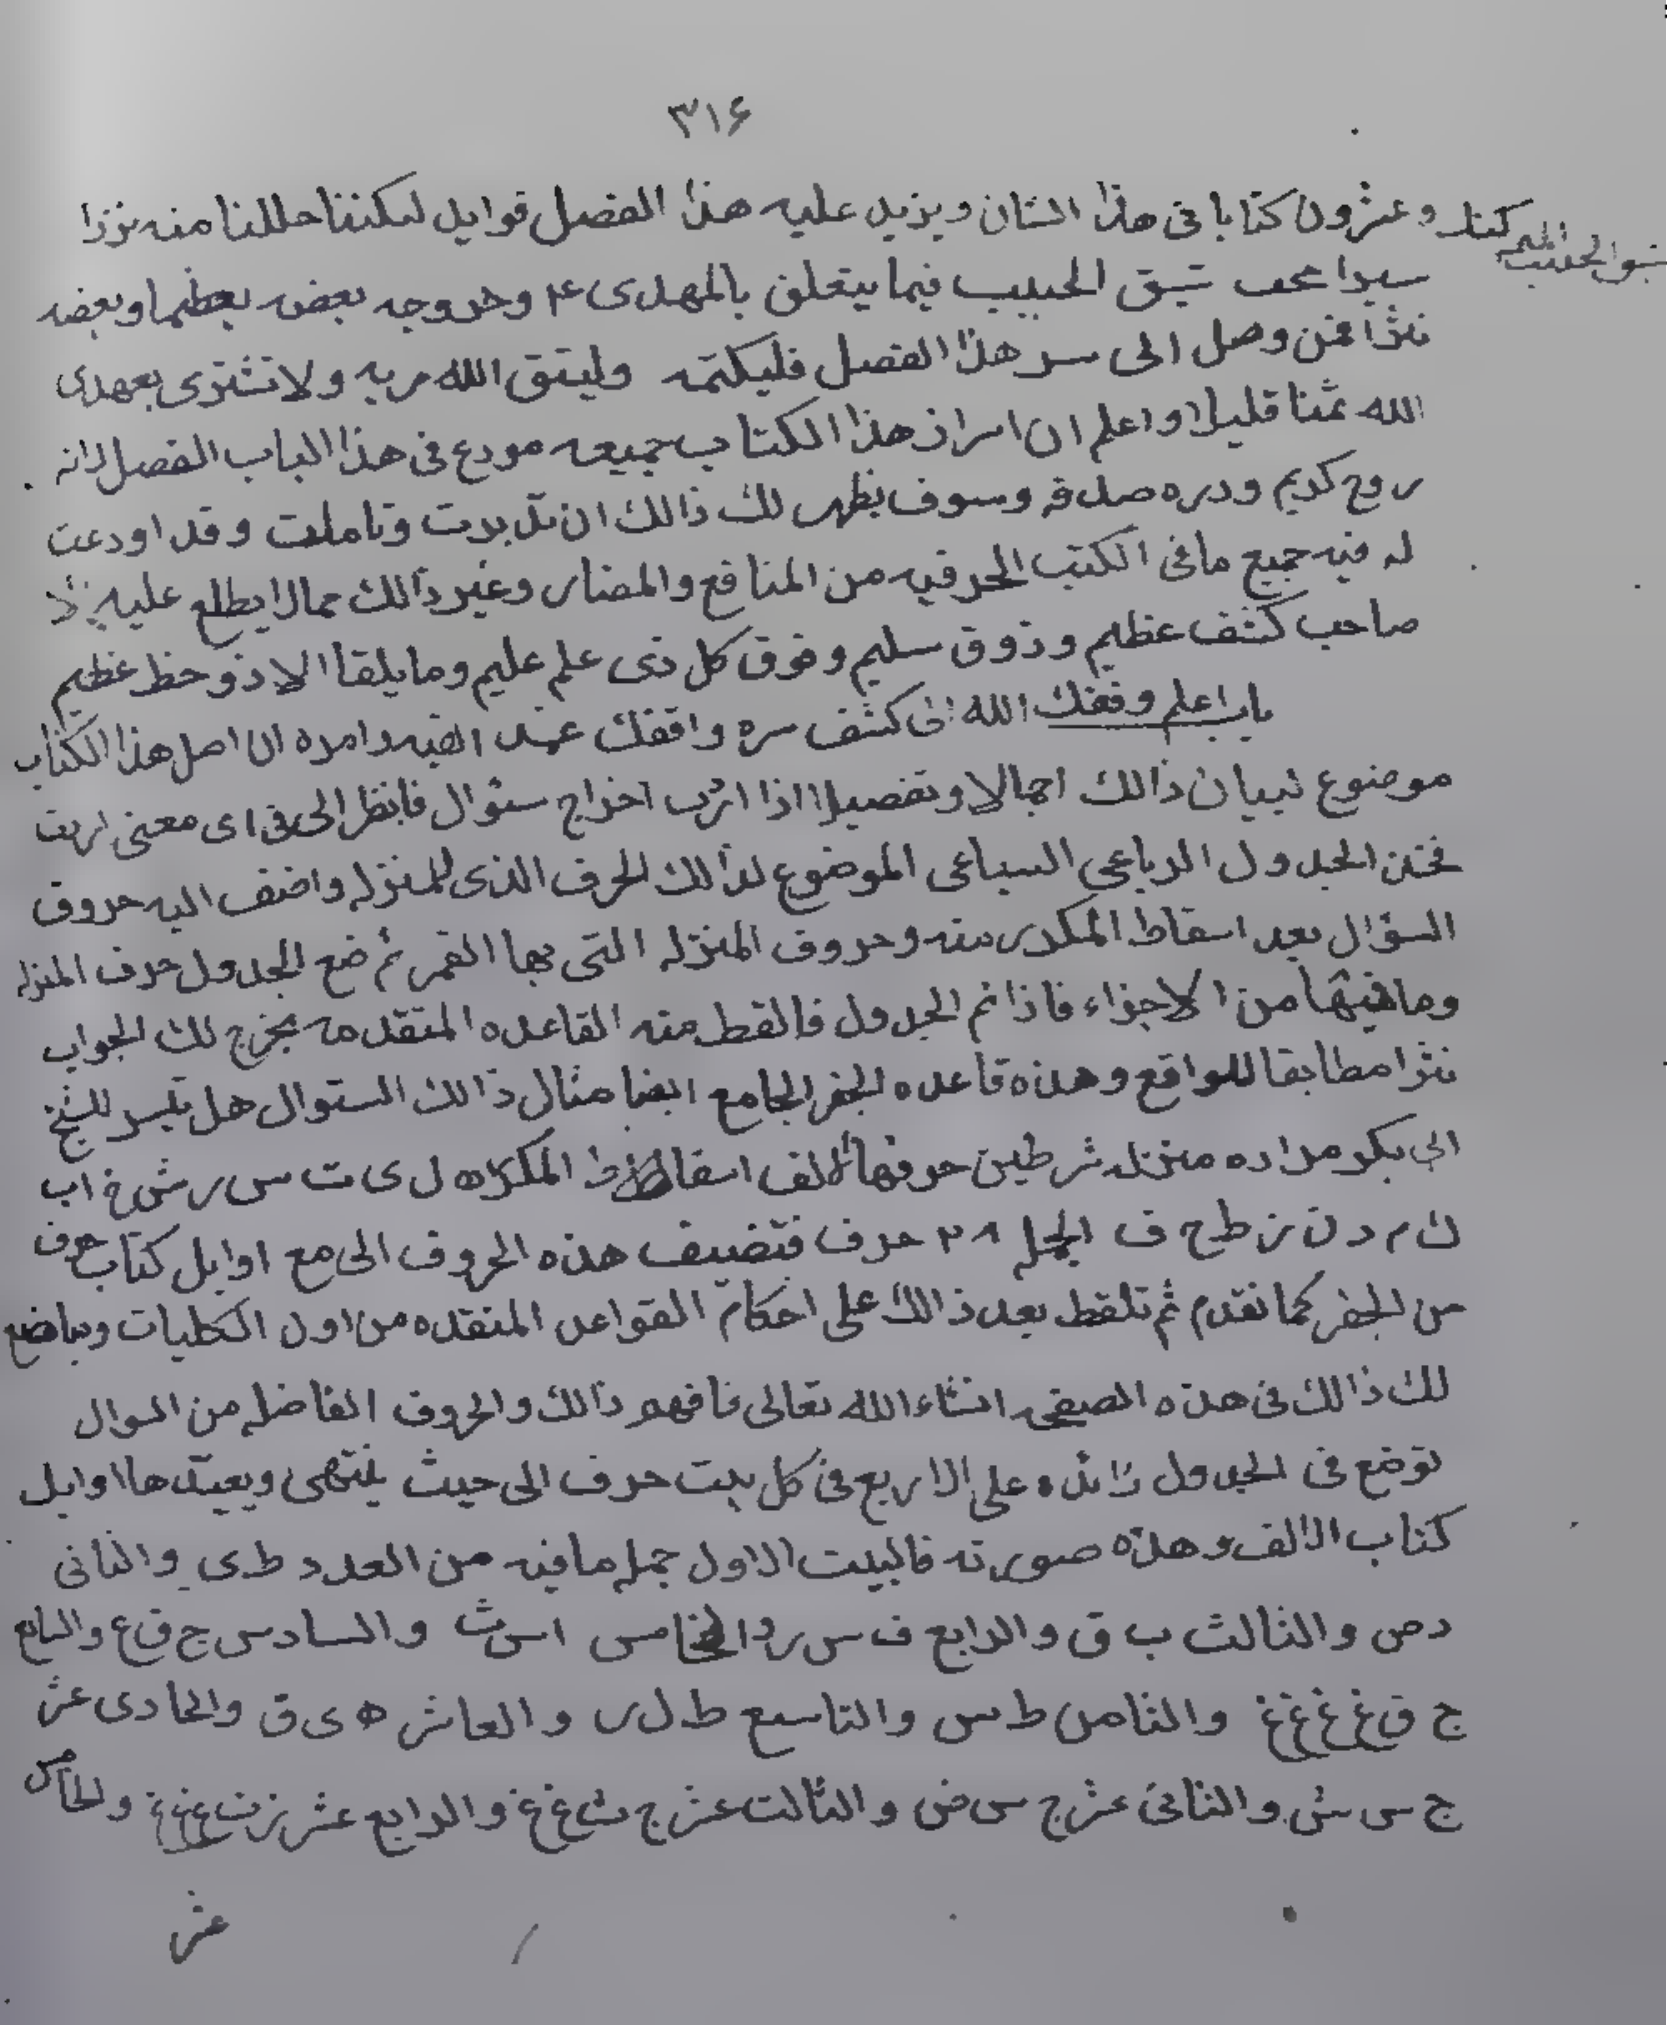 ٣١۶
وعشرون كتابا فى هذا الشان ويزيد عليه هذا الفصل فوايد لكننا حللنا منه نزرا
سيرا محب شيق الحبيب فيما يتعلق بالمهدى ۴ وخروجه بعضه بعظما وبعضه
نثرا فمن وصل الى سر هذا الفصل فليكتمه وليتق الله ربه ولا تشترى بعهدى
الله ثمنا قليلا واعلم ان اسرار هذا الكتاب جميعه مودع فى هذا الباب الفصل لانه
روح كريم ودره صدفه وسوف يظهر لك ذالك ان تدبرت وتاملت وقد اودعت
له فيه جميع ما فى الكتب الحرفيه من المنافع والمضار وغير ذالك مما لا يطلع عليه الا
صاحب كشف عظيم وذوق سليم وفوق كل ذى علم عليم وما يلقا الا ذو حظ عظيم
باب اعلم وفقك الله الى كشف سره واقفك عند وامره ان اصل هذا الكتاب
موضوع لبيان ذالك اجمالا وتفصيلا اذا اخراج سئوال فانظر الى فى اى معنى اردت
فخذ الجدول الرباعى السباعى الموضوع لذالك الحرف الذى للمنزله واضف اليه حروف
السؤال بعد اسقاط المكرر منه وحروف المنزله التى بها القمر ثم ضع الجدول حرف المنزله
وما فيها من الاجزاء فاذا تم الجدول فالقط منه القاعده المتقدمه يخرج لك الجواب
نثرا مطابقا للواقع وهذه قاعده الجفر الجامع ايضا مثال ذالك السئوال هل تيسر للشيخ
ابى بكر مراده منزله شرطين حرفها الالف اسقاط المكرر ه ل ى ت س ر ش خ ا ب
ك م د ن ز ط ح ف الجمله ٢٨ حرف فتضيف هذه الحروف الى مع اوايل كتاب حرف
من الجفر كما تقدم ثم تلقط بعد ذالك على احكام القواعد المتقده من اول الكليات وبياضع
لك ذالك فى هذه الصيفحه انشاء الله تعالى فافهم ذالك والحروف الفاضله من السوال
توضع فى الجدول زائده على الاربع فى كل بيت حرف الى حيث ينتهى ويعيدها اوايل
كتاب الالف وهذه صورته فالبيت الاول جمله ما فيه من العدد ط ى والثانى
د ص والثالث ب ق والرابع ف س ر والخامس ا س ث والسادس ج ق ع والسابع
ج ق غ غ غ غ والثامن ط س والتاسع ط ل ر والعاشر ه ى ق والحادى عشر
ج س ش والثانى عشر ج س ض والثالث عشر ج ث غ غ والرابع عشر ز ث غ غ غ والخامس
عشر